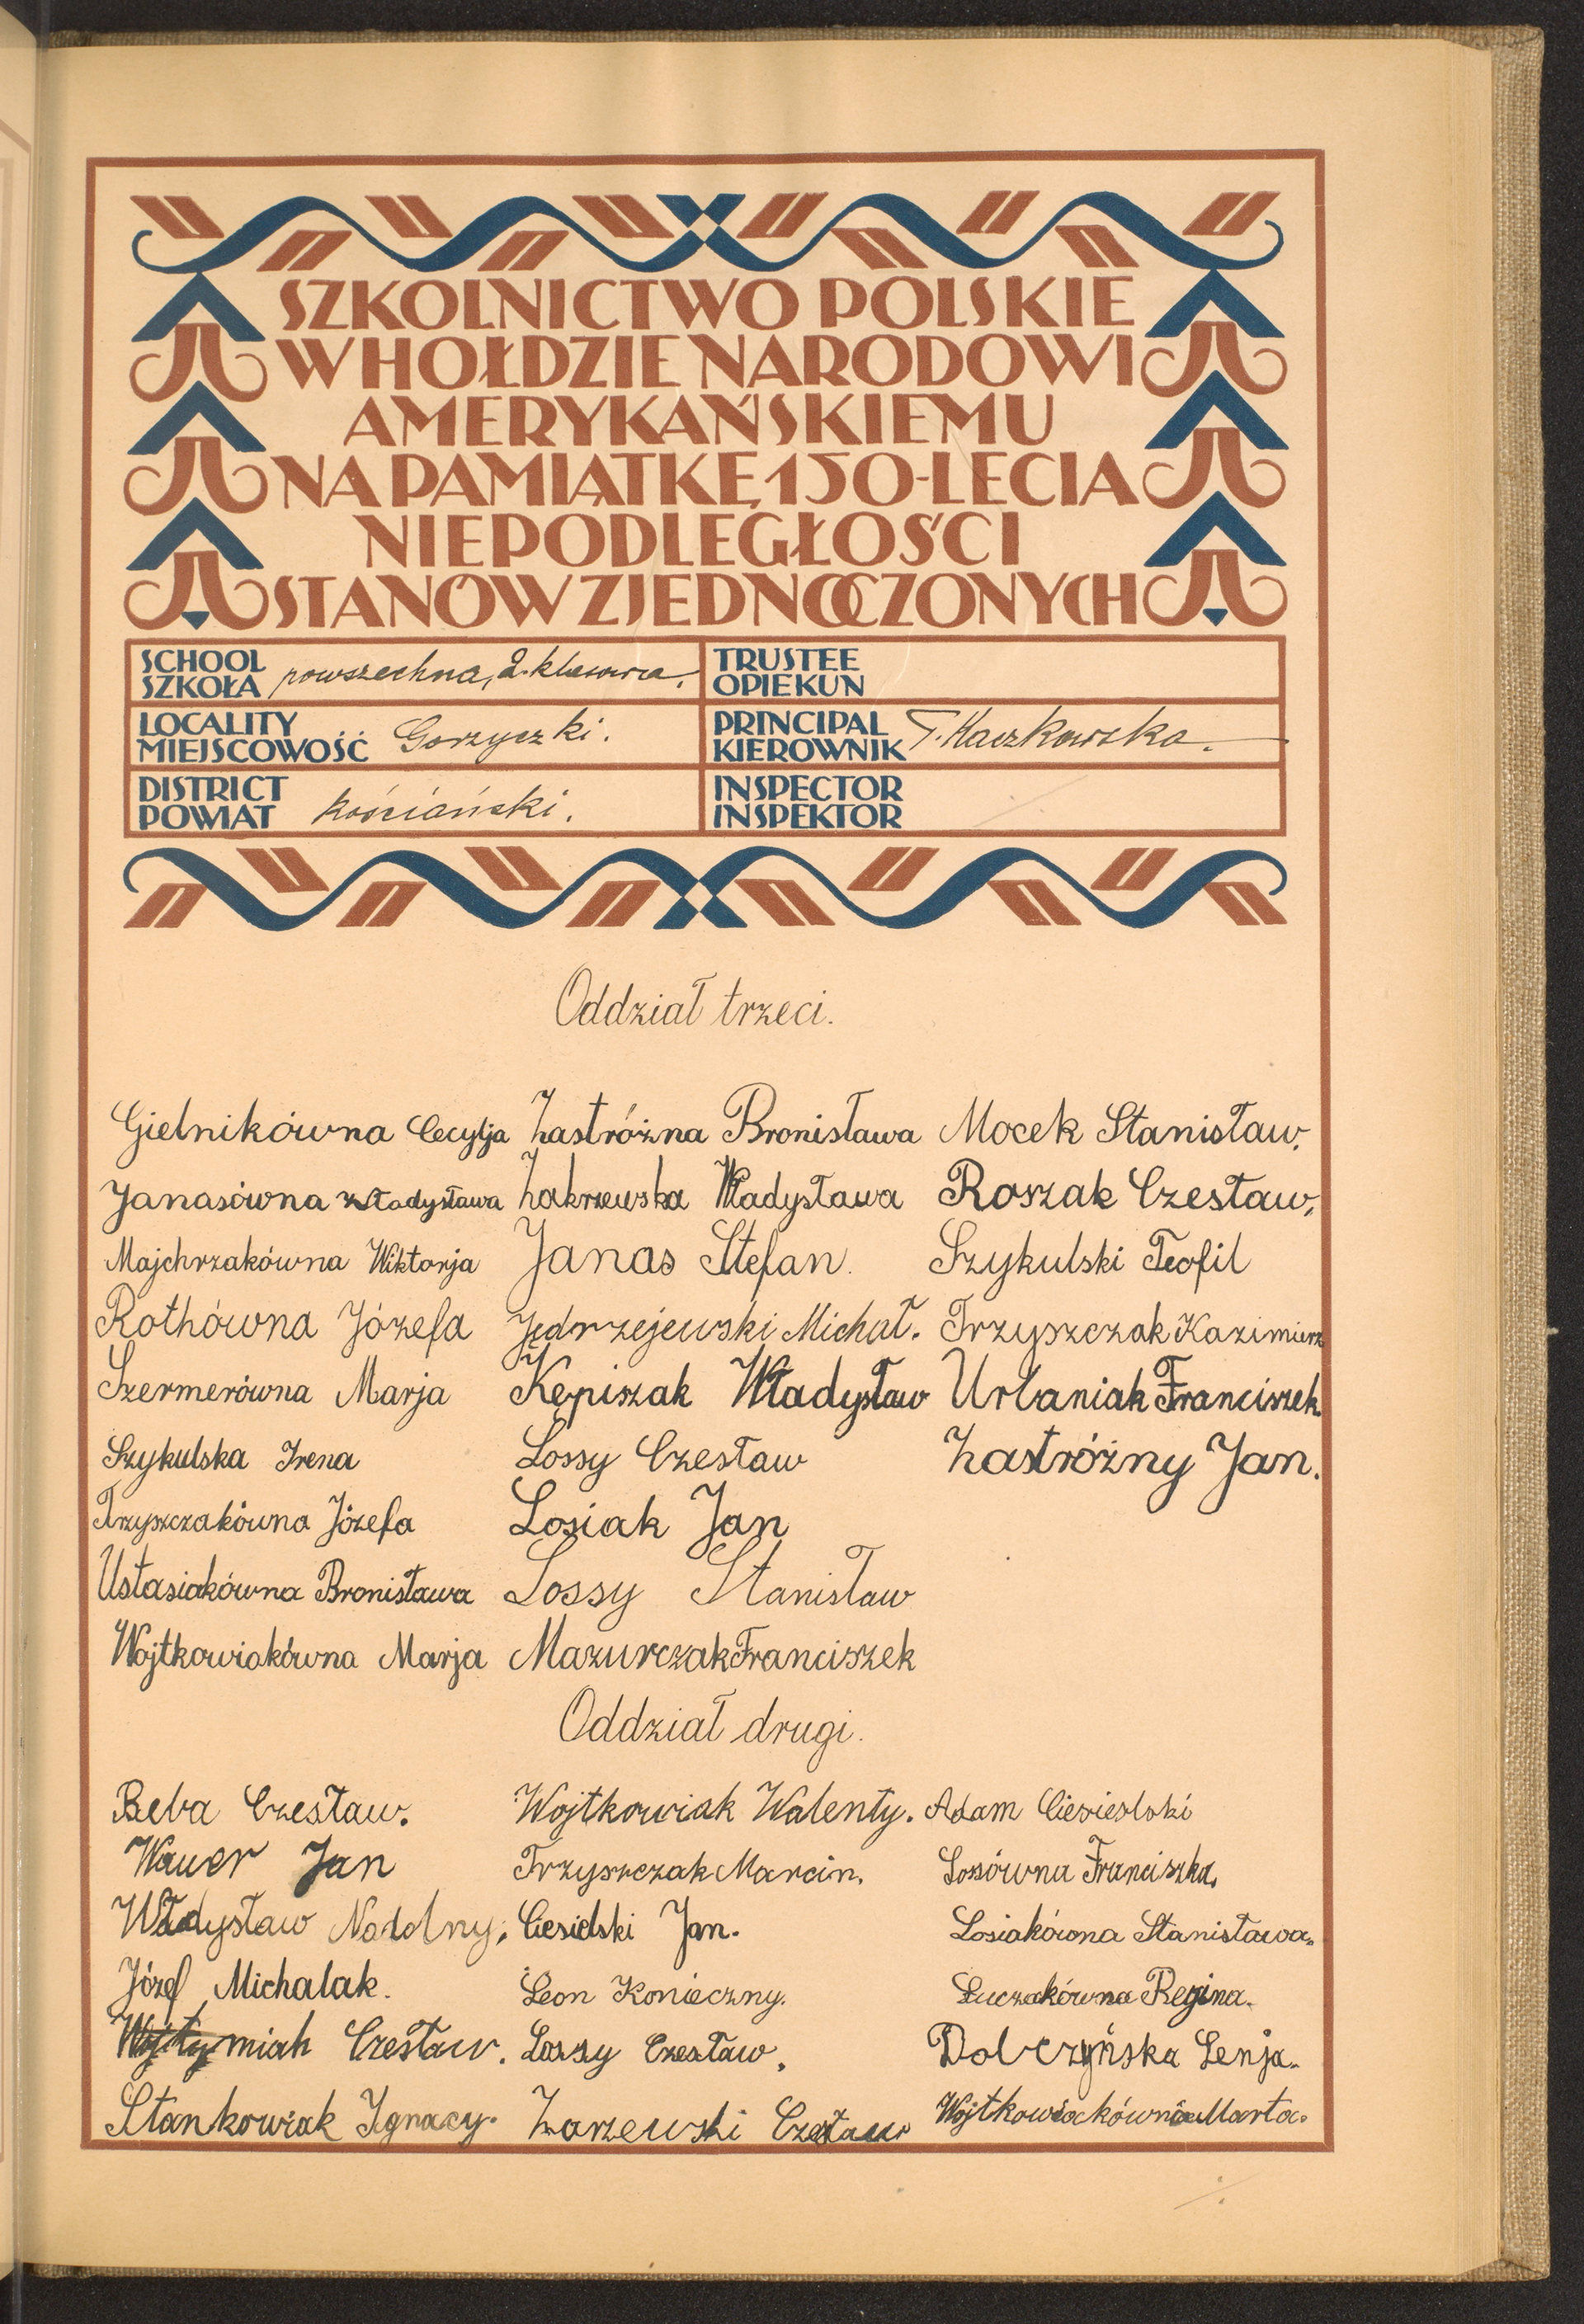 SZKOLNICTWO POLSKIE
W HOŁDZIE NARODOWI
AMERYKAŃSKIEMU
NA PAMIĄTKĘ 150-LECIA
NIEPODLEGŁOŚCI
STANÓW ZJEDNOCZONYCH
SCHOOL
SZKOŁA powszechna, 2-klasowa.
TRUSTEE
OPIEKUN
LOCALITY
MIEJSCOWOŚĆ Gorzyczki.
PRINCIPAL
KIEROWNIK T. Kaczkowska.
DISTRICT
POWIAT kościański.
INSPECTOR
INSPEKTOR
Oddział trzeci.
Gielnikówna Cecylja
Janasówna Władysława
Majchrzakówna Wiktorja
Rothówna Józefa
Szermerówna Marja
Szykulska Irena
Trzyszczakówna Józefa
Ustasiakówna Bronisława
Wojtkowiakówna Marja
Zastróżna Bronisława
Zakrzewska Władysława
Janas Stefan.
Jędrzejewski Michał.
Kępiszak Władysław
Lossy Czesław
Losiak Jan
Lossy Stanisław
Mazurczak Franciszek
Mocek Stanisław.
Roszak Czesław,
Szykulski Teofil
Trzyszczak Kazimierz
Urbaniak Franciszek
Zastróżny Jan.
Oddział drugi.
Beba Czesław.
Wauer Jan
Władysław Nadolny,
Józef Michalak.
Czesław.
Stankowiak Ignacy.
Wojtkowiak Walenty.
Trzyszczak Marcin.
Ciesielski Jan.
Leon Konieczny.
Lossy Czesław,
Zarzewski Czesław
Adam
Lossówna Franciszka,
Losiakówna Stanisława.
Łuczakówna Regina.
Dolczyńska Lenja.
Wojtkowiakówna Marta.